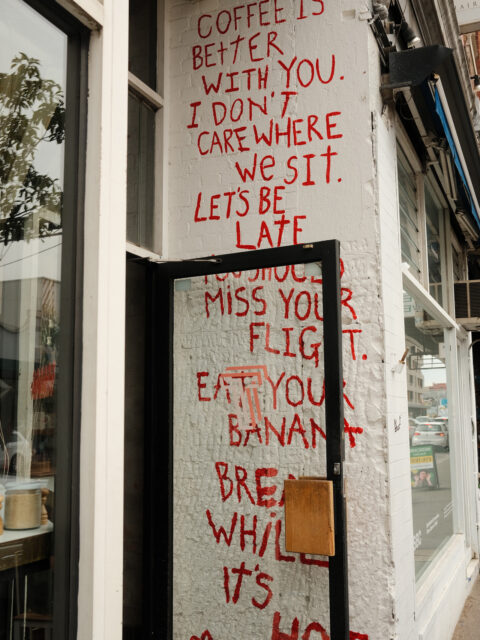 COFFEE IS
BETTER
WITH YOU.
I DON'T
CARE WHERE
WE SIT.
LET'S BE
LATE
YOU SHOULD
MISS YOUR
FLIGHT.
EAT YOUR
BANANA
BREAD
WHILE
IT'S
HOT